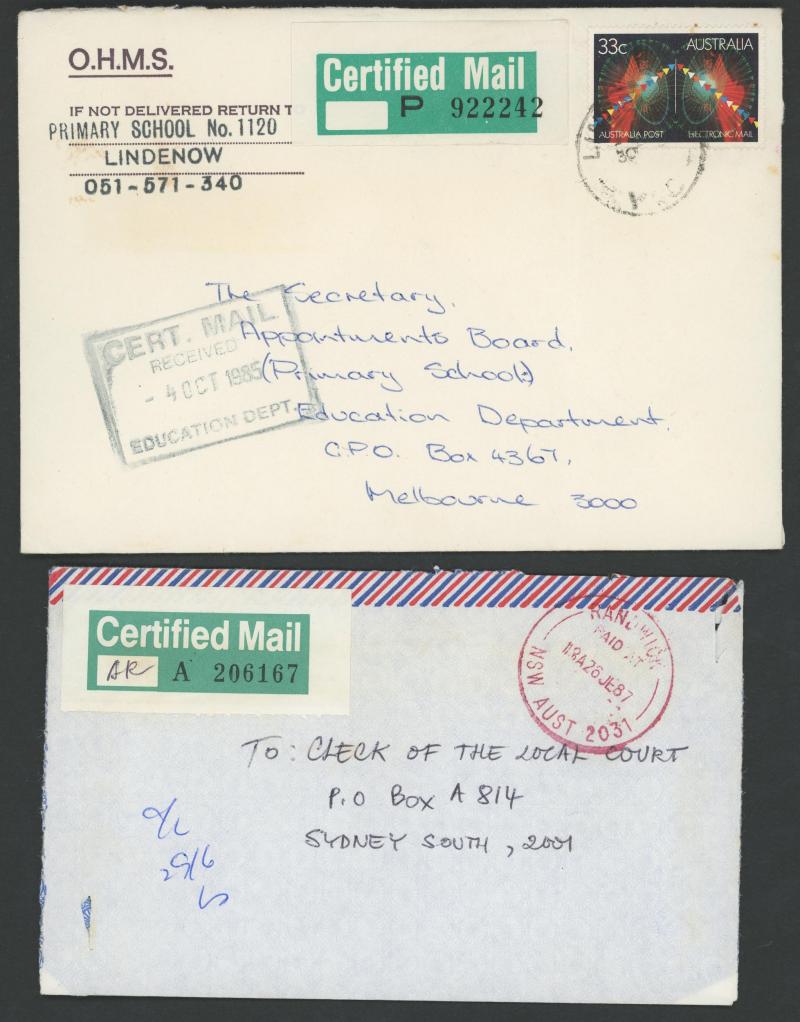 O.H.M.S.
IF NOT DELIVERED RETURN T
PRIMARY SCHOOL No. 1120
LINDENOW
051-571-340
Certified Mail
P 922242
33c AUSTRALIA
AUSTRALIA POST ELECTRONIC MAIL
30
VIC
The Secretary,
Appointments Board,
(Primary Schools)
Education Department,
G.P.O. Box 4367,
Melbourne 3000
CERT. MAIL
RECEIVED
- 4 OCT 1985
EDUCATION DEPT.
Certified Mail
AR A 206167
RANDWICK
PAID AT
26JE87
NSW AUST 2031
TO: CLECK OF THE LOCAL COURT
P.O BOX A 814
SYDNEY SOUTH, 2001